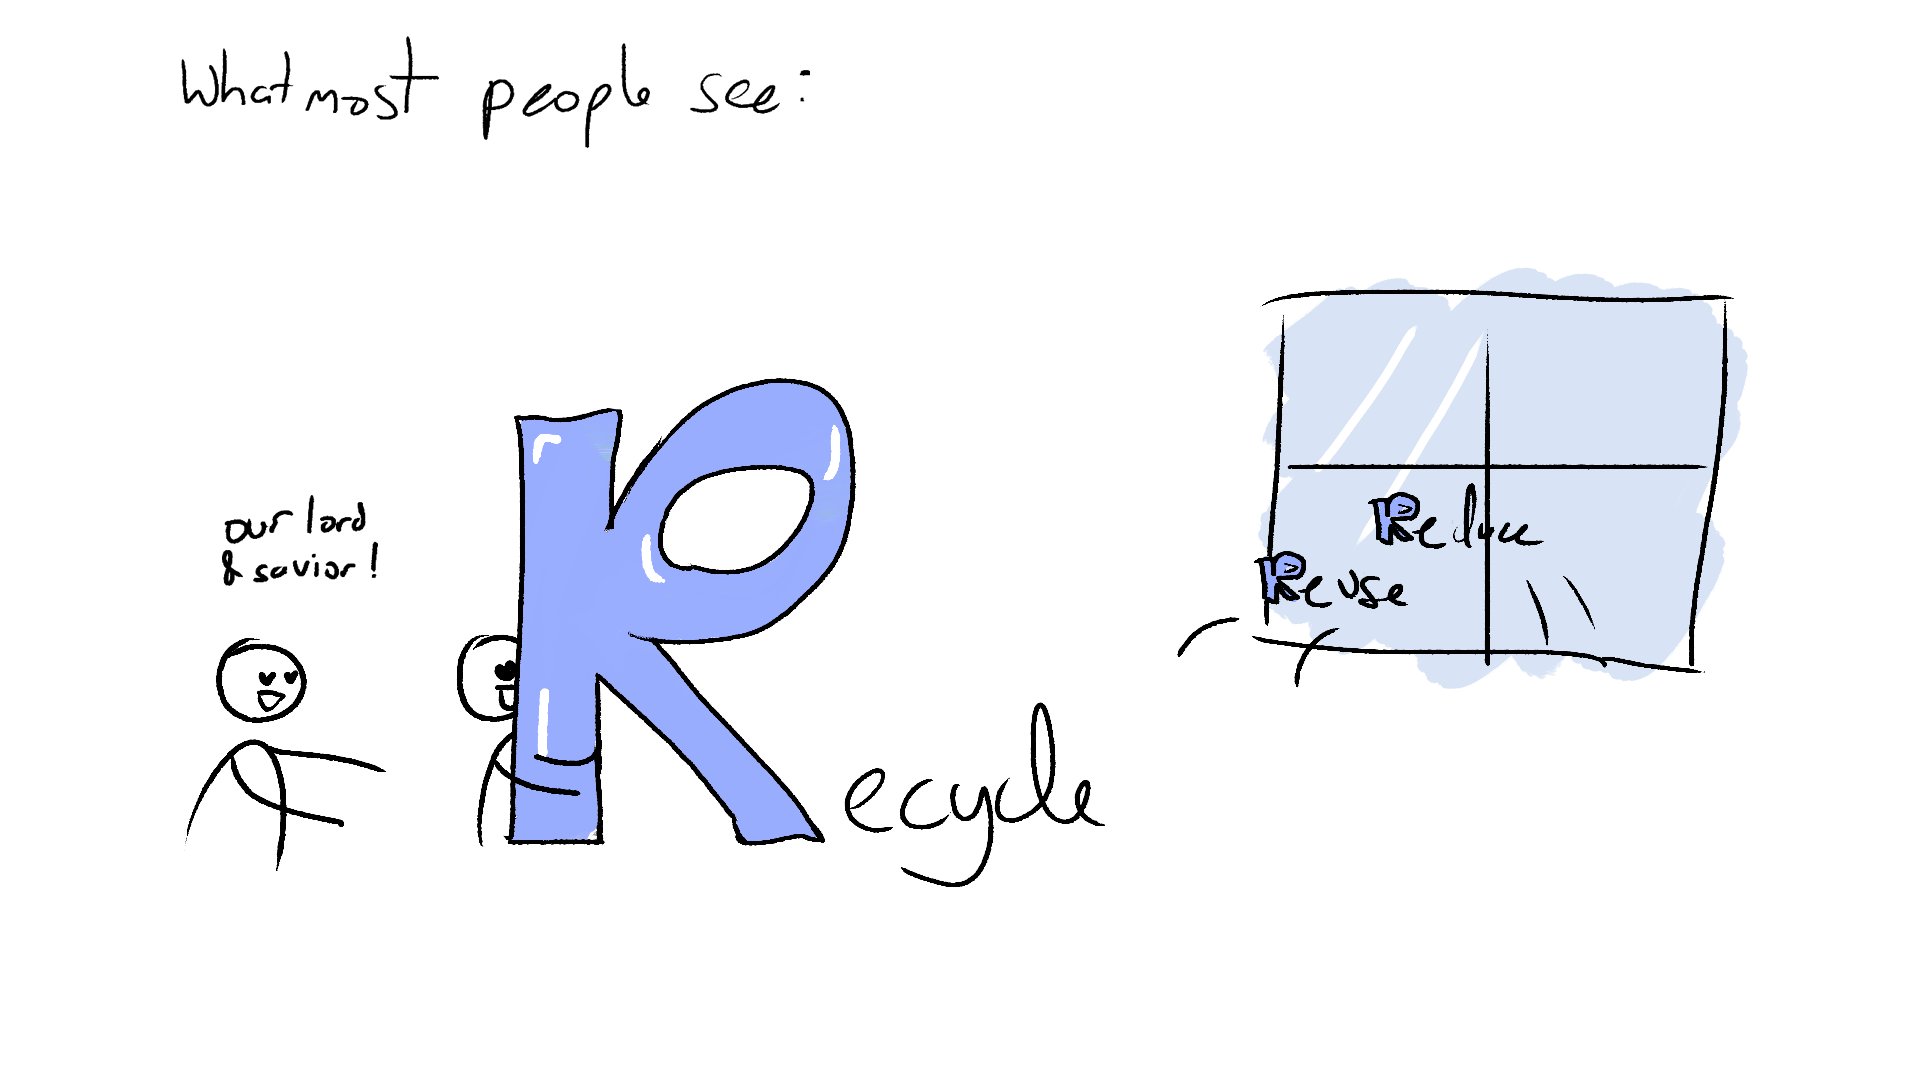 What most people see:
our lord
& savior!
Recycle
Reduce
Reuse